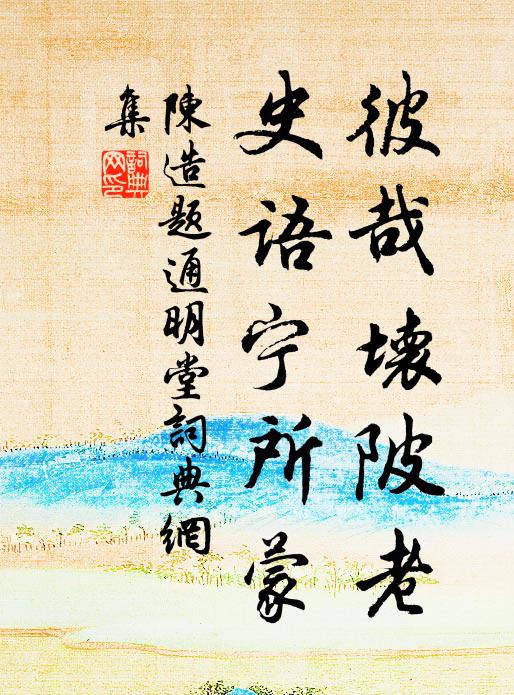 彼哉壞陂老
史語宁所蒙
陳造題通明堂詞典網
集
詞典
网印